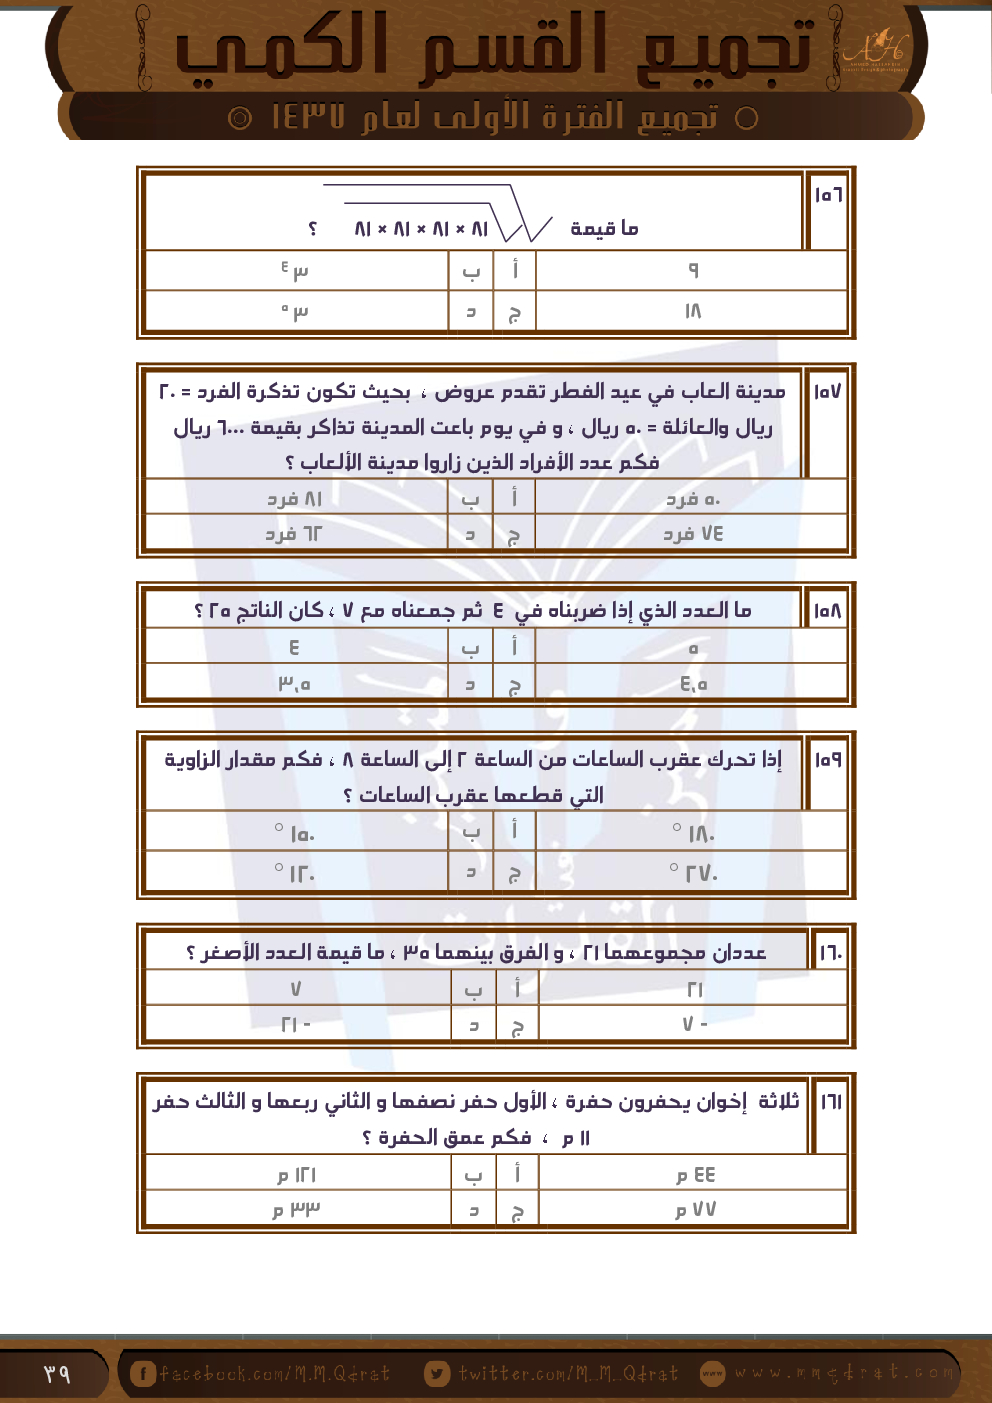 تجميع القسم الكمي
تجميع الفترة الأولى لعام ١٤٣٧
١٥٦
ما قيمة √√٨١ × ٨١ × ٨١ × ٨١ ؟
٩ أ ب ٣ ٤
١٨ ج د ٣ ٥
١٥٧
مدينة العاب في عيد الفطر تقدم عروض ، بحيث تكون تذكرة الفرد = ٢٠
ريال والعائلة = ٥٠ ريال ، و في يوم باعت المدينة تذاكر بقيمة ٦٠٠٠ ريال
فكم عدد الأفراد الذين زاروا مدينة الألعاب ؟
٥٠ فرد أ ب ٨١ فرد
٧٤ فرد ج د ٦٢ فرد
١٥٨
ما العدد الذي إذا ضربناه في ٤ ثم جمعناه مع ٧ ، كان الناتج ٢٥ ؟
٥ أ ب ٤
٤,٥ ج د ٣,٥
١٥٩
إذا تحرك عقرب الساعات من الساعة ٢ إلى الساعة ٨ ، فكم مقدار الزاوية
التي قطعها عقرب الساعات ؟
١٨٠ ° أ ب ١٥٠ °
٢٧٠ ° ج د ١٢٠ °
١٦٠
عددان مجموعهما ٢١ ، و الفرق بينهما ٣٥ ، ما قيمة العدد الأصغر ؟
٢١ أ ب ٧
- ٧ ج د - ٢١
١٦١
ثلاثة إخوان يحفرون حفرة ، الأول حفر نصفها و الثاني ربعها و الثالث حفر
١١ م ، فكم عمق الحفرة ؟
٤٤ م أ ب ١٢١ م
٧٧ م ج د ٣٣ م
٣٩
facebook.com/M.M.Qdrat
twitter.com/M_M_Qdrat
www.mmqdrat.com